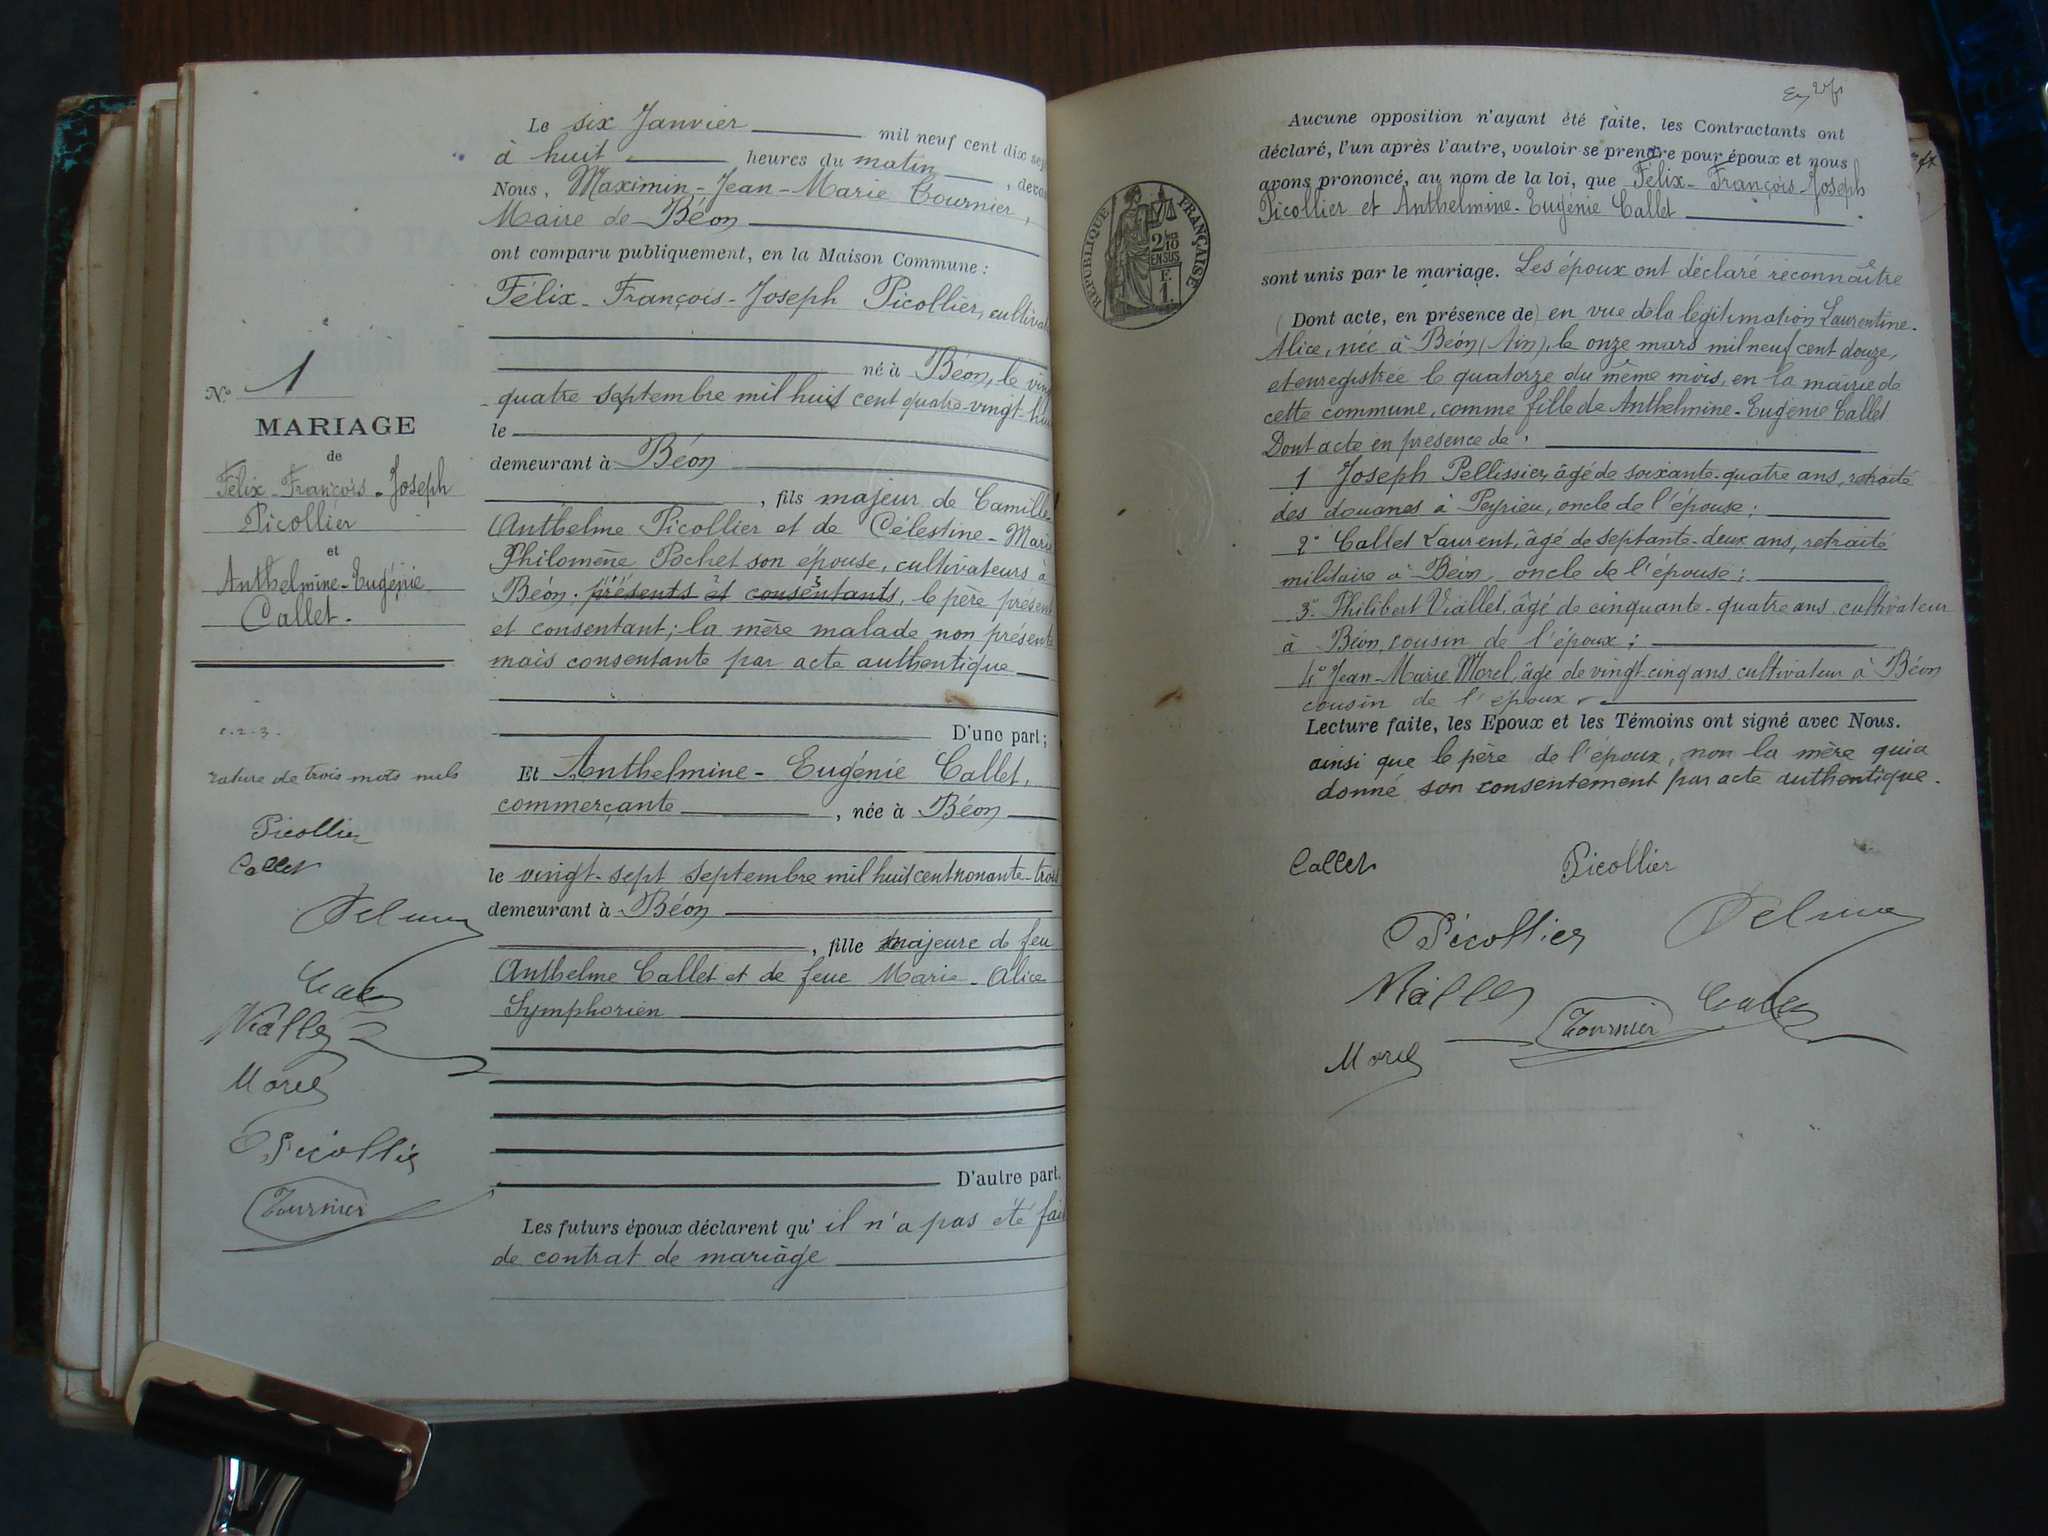 Nº 1
MARIAGE
de
Félix-François-Joseph
Picollier
et
Anthelmine-Eugénie
Callet.
rature de trois mots nuls
Picollier
Callet
Viallet
Morel
Picollier
Tournier
Le six Janvier mil neuf cent dix sep
à huit heures du matin, devant
Nous, Maximin-Jean-Marie Tournier,
Maire de Béon
ont comparu publiquement, en la Maison Commune :
Félix-François-Joseph Picollier, cultivat
né à Béon, le vingt
quatre septembre mil huit cent quatre-vingt-hui
le
demeurant à Béon
, fils majeur de Camille-
Anthelme Picollier et de Célestine-Marie
Philomène Pochet son épouse, cultivateurs à
Béon. présents et consentants, le père présent
et consentant; la mère malade, non présente
mais consentante par acte authentique
D'une part;
Et Anthelmine-Eugénie Callet,
commerçante, née à Béon
le vingt-sept septembre mil huit cent nonante-trois
demeurant à Béon
, fille majeure de feu
Anthelme Callet et de feue Marie-Alice
Symphorien
D'autre part.
Les futurs époux déclarent qu'il n'a pas été fait
de contrat de mariage
Aucune opposition n'ayant été faite, les Contractants ont
déclaré, l'un après l'autre, vouloir se prendre pour époux et nous
avons prononcé, au nom de la loi, que Félix-François-Joseph
Picollier et Anthelmine-Eugénie Callet
RÉPUBLIQUE FRANÇAISE
2/10 EN SUS
F. 1.
sont unis par le mariage. Les époux ont déclaré reconnaître
(Dont acte, en présence de) en vue de la légitimation Laurentine-
Alice, née à Béon (Ain), le onze mars mil neuf cent douze,
et enregistrée le quatorze du même mois, en la mairie de
cette commune, comme fille de Anthelmine-Eugénie Callet
Dont acte en présence de :
1 Joseph Pellissier, âgé de soixante-quatre ans, retraité
des douanes à Peyrieu, oncle de l'épouse;
2° Callet Laurent, âgé de septante-deux ans, retraité
militaire à Béon, oncle de l'épouse;
3° Philibert Viallet, âgé de cinquante-quatre ans, cultivateur
à Béon, cousin de l'époux;
4° Jean-Marie Morel, âgé de vingt-cinq ans, cultivateur à Béon
cousin de l'époux
Lecture faite, les Epoux et les Témoins ont signé avec Nous.
ainsi que le père de l'époux, non la mère qui a
donné son consentement par acte authentique.
Callet Picollier
Picollier
Viallet
Tournier
Morel